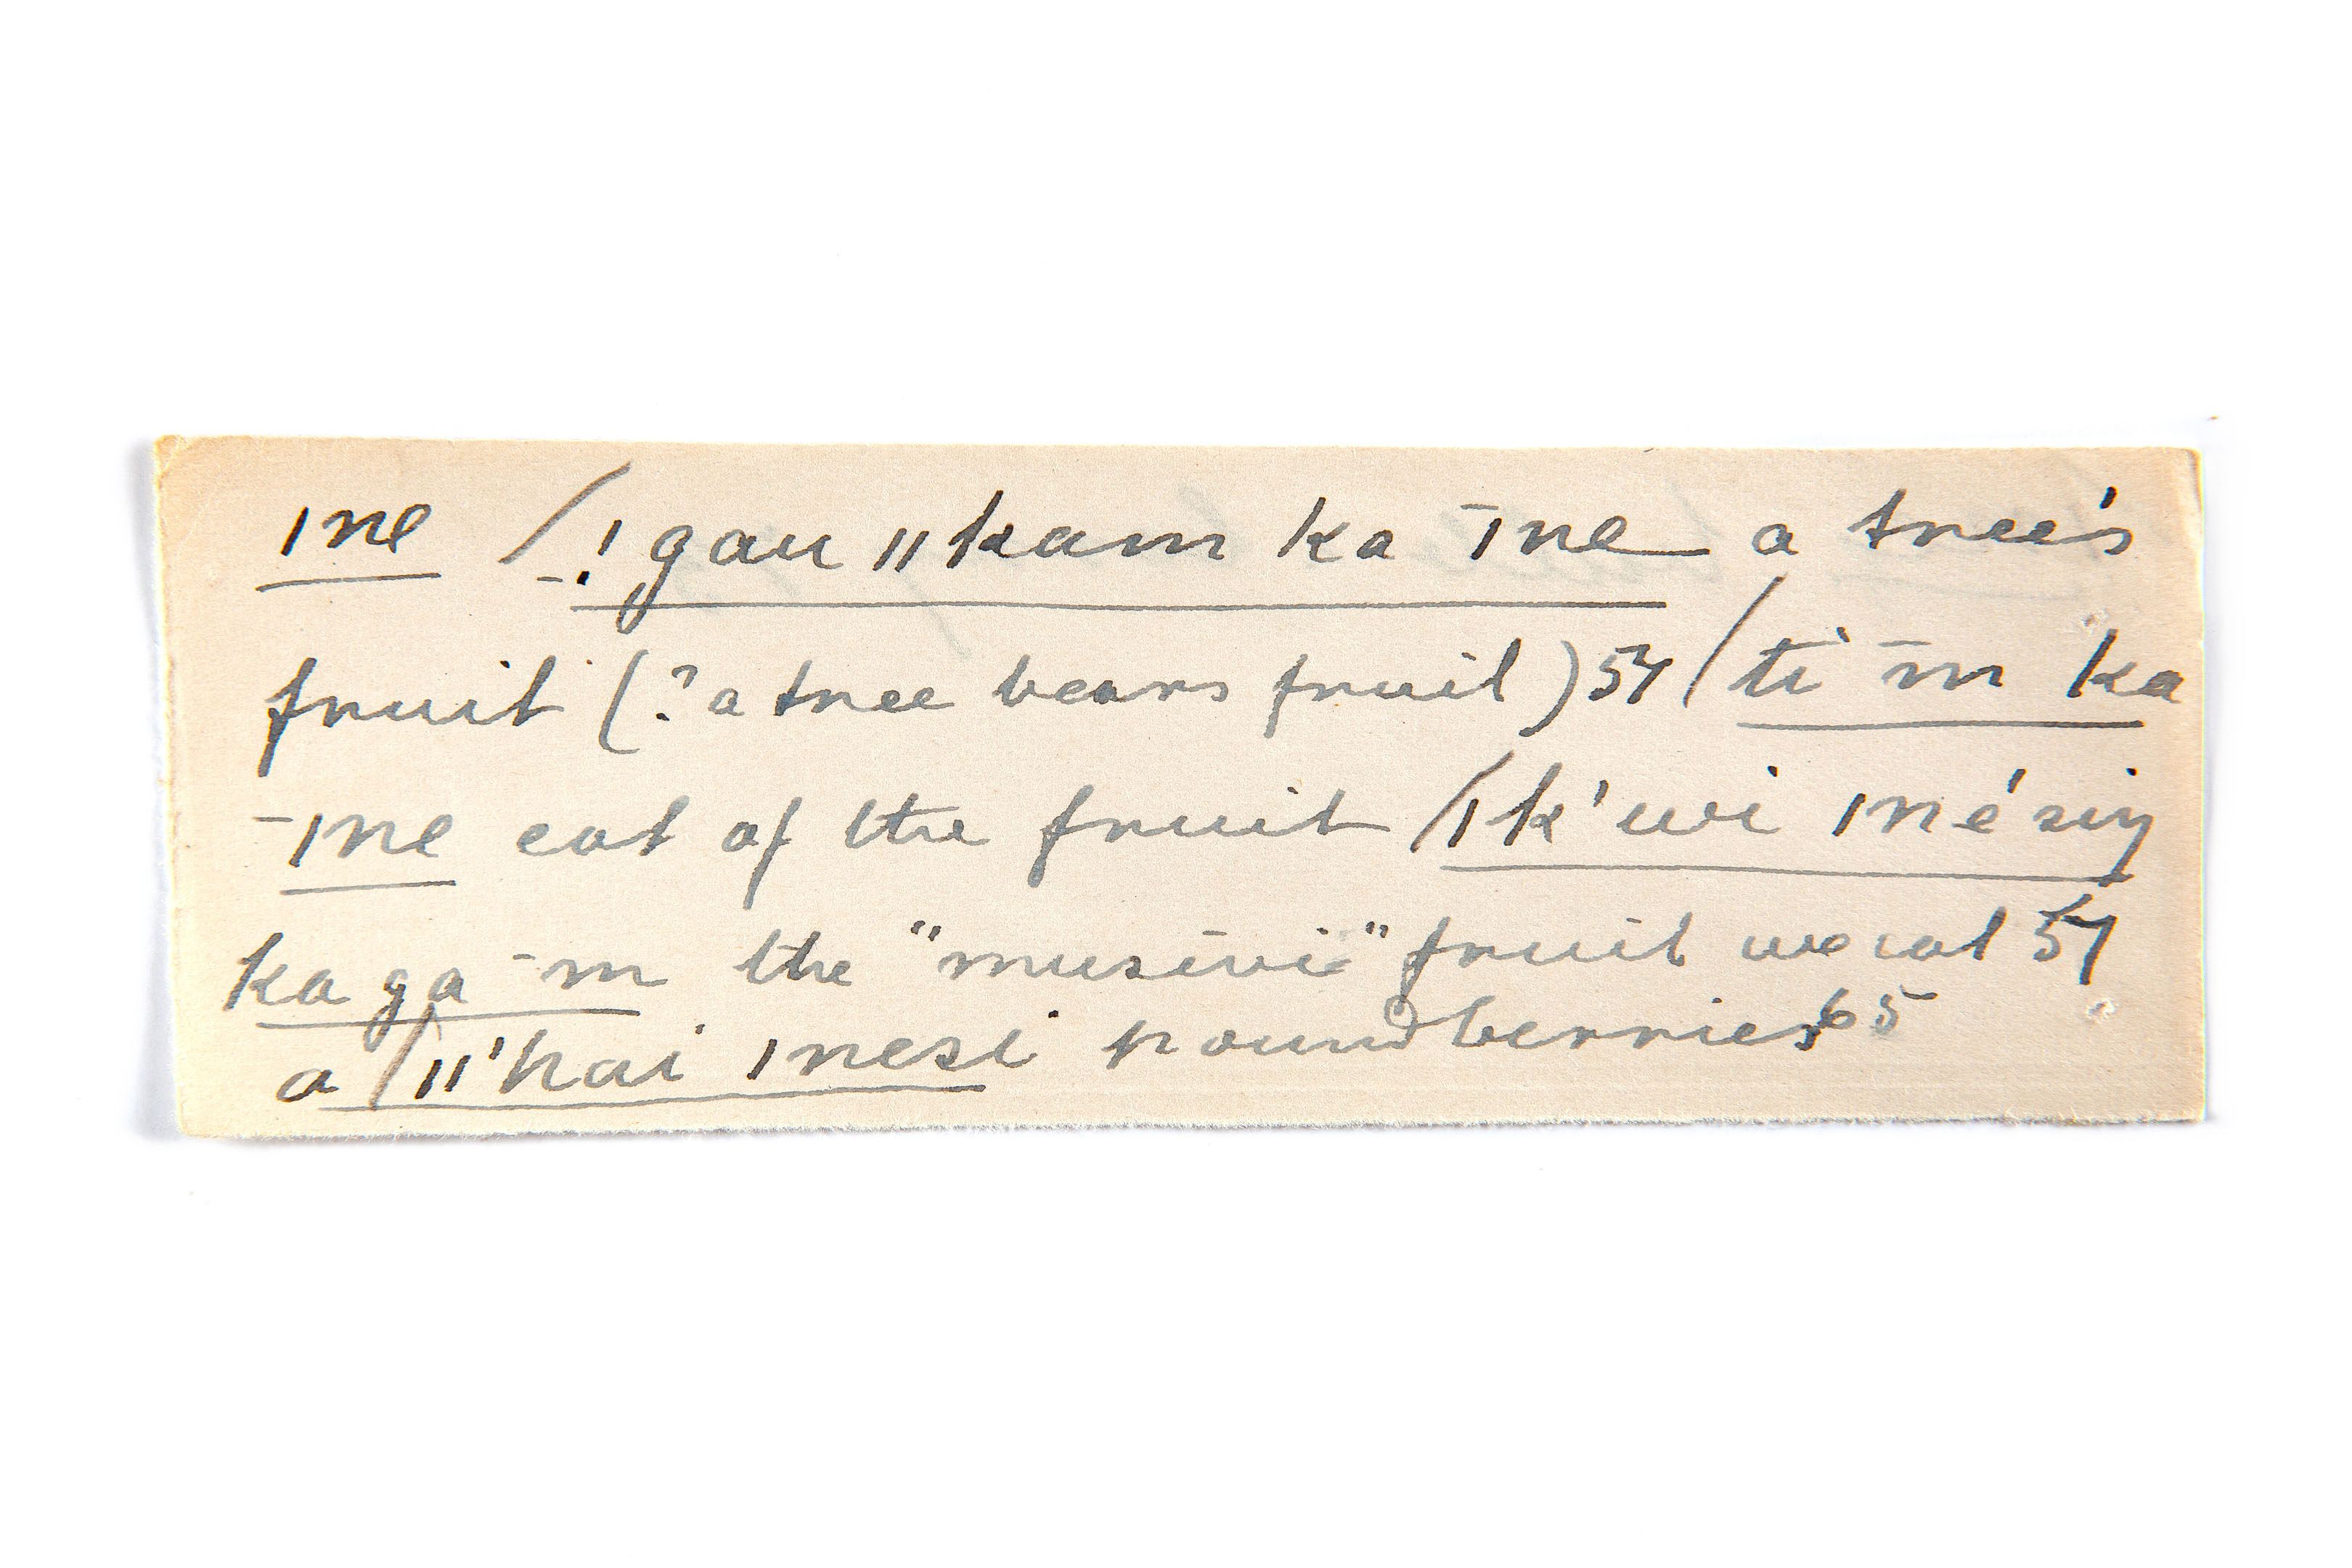 ǀne / _ǃgau ǁkam ka ˉǀne a tree's
fruit (? a tree bears fruit) 54 / ti ˉm ka
ˉǀne eat of the fruit / ǀk'wi ǀné siŋ
ka ga ˉm the "musivi" fruit we eat 54
a / ǁ'hai ǀnesi pound berries 65